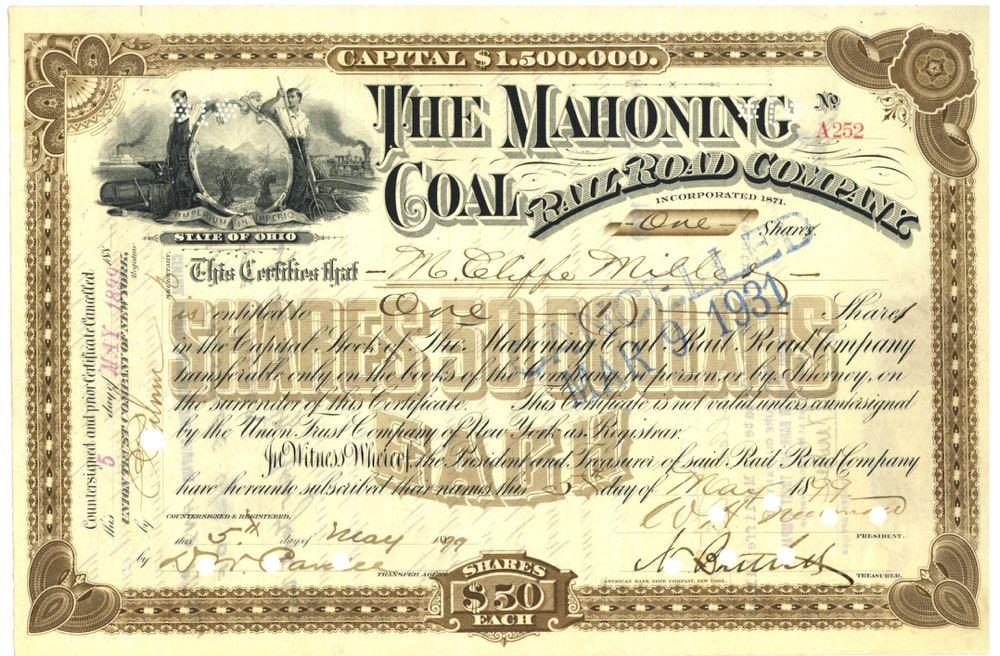 CAPITAL $1.500.000.
THE MAHONING
COAL RAIL ROAD COMPANY
No
A252
INCORPORATED 1871.
IMPERIUM IN IMPERIO
STATE OF OHIO
One Shares
This Certifies that M. Cliffe Miller
is entitled to One (1) Shares
in the Capital Stock of The Mahoning Coal Rail Road Company
transferable only on the books of the Company in person or by Attorney, on
the surrender of this Certificate. This Certificate is not valid unless countersigned
by the Union Trust Company of New York as Registrar.
In Witness Whereof, the President and Treasurer of said Rail Road Company
have hereunto subscribed their names this day of May 1899
SHARES 50 DOLLARS
EACH
CANCELLED
MAR 9 1931
COUNTERSIGNED & REGISTERED,
this 5th day of May 1899
by
TRANSFER AGENT
PRESIDENT.
TREASURER.
AMERICAN BANK NOTE COMPANY, NEW YORK.
SHARES
$50
EACH
Countersigned and prior Certificate Cancelled
this 5 day of MAY 1899 188
UNION TRUST COMPANY OF NEW YORK,
Registrar
by
SECRETARY.